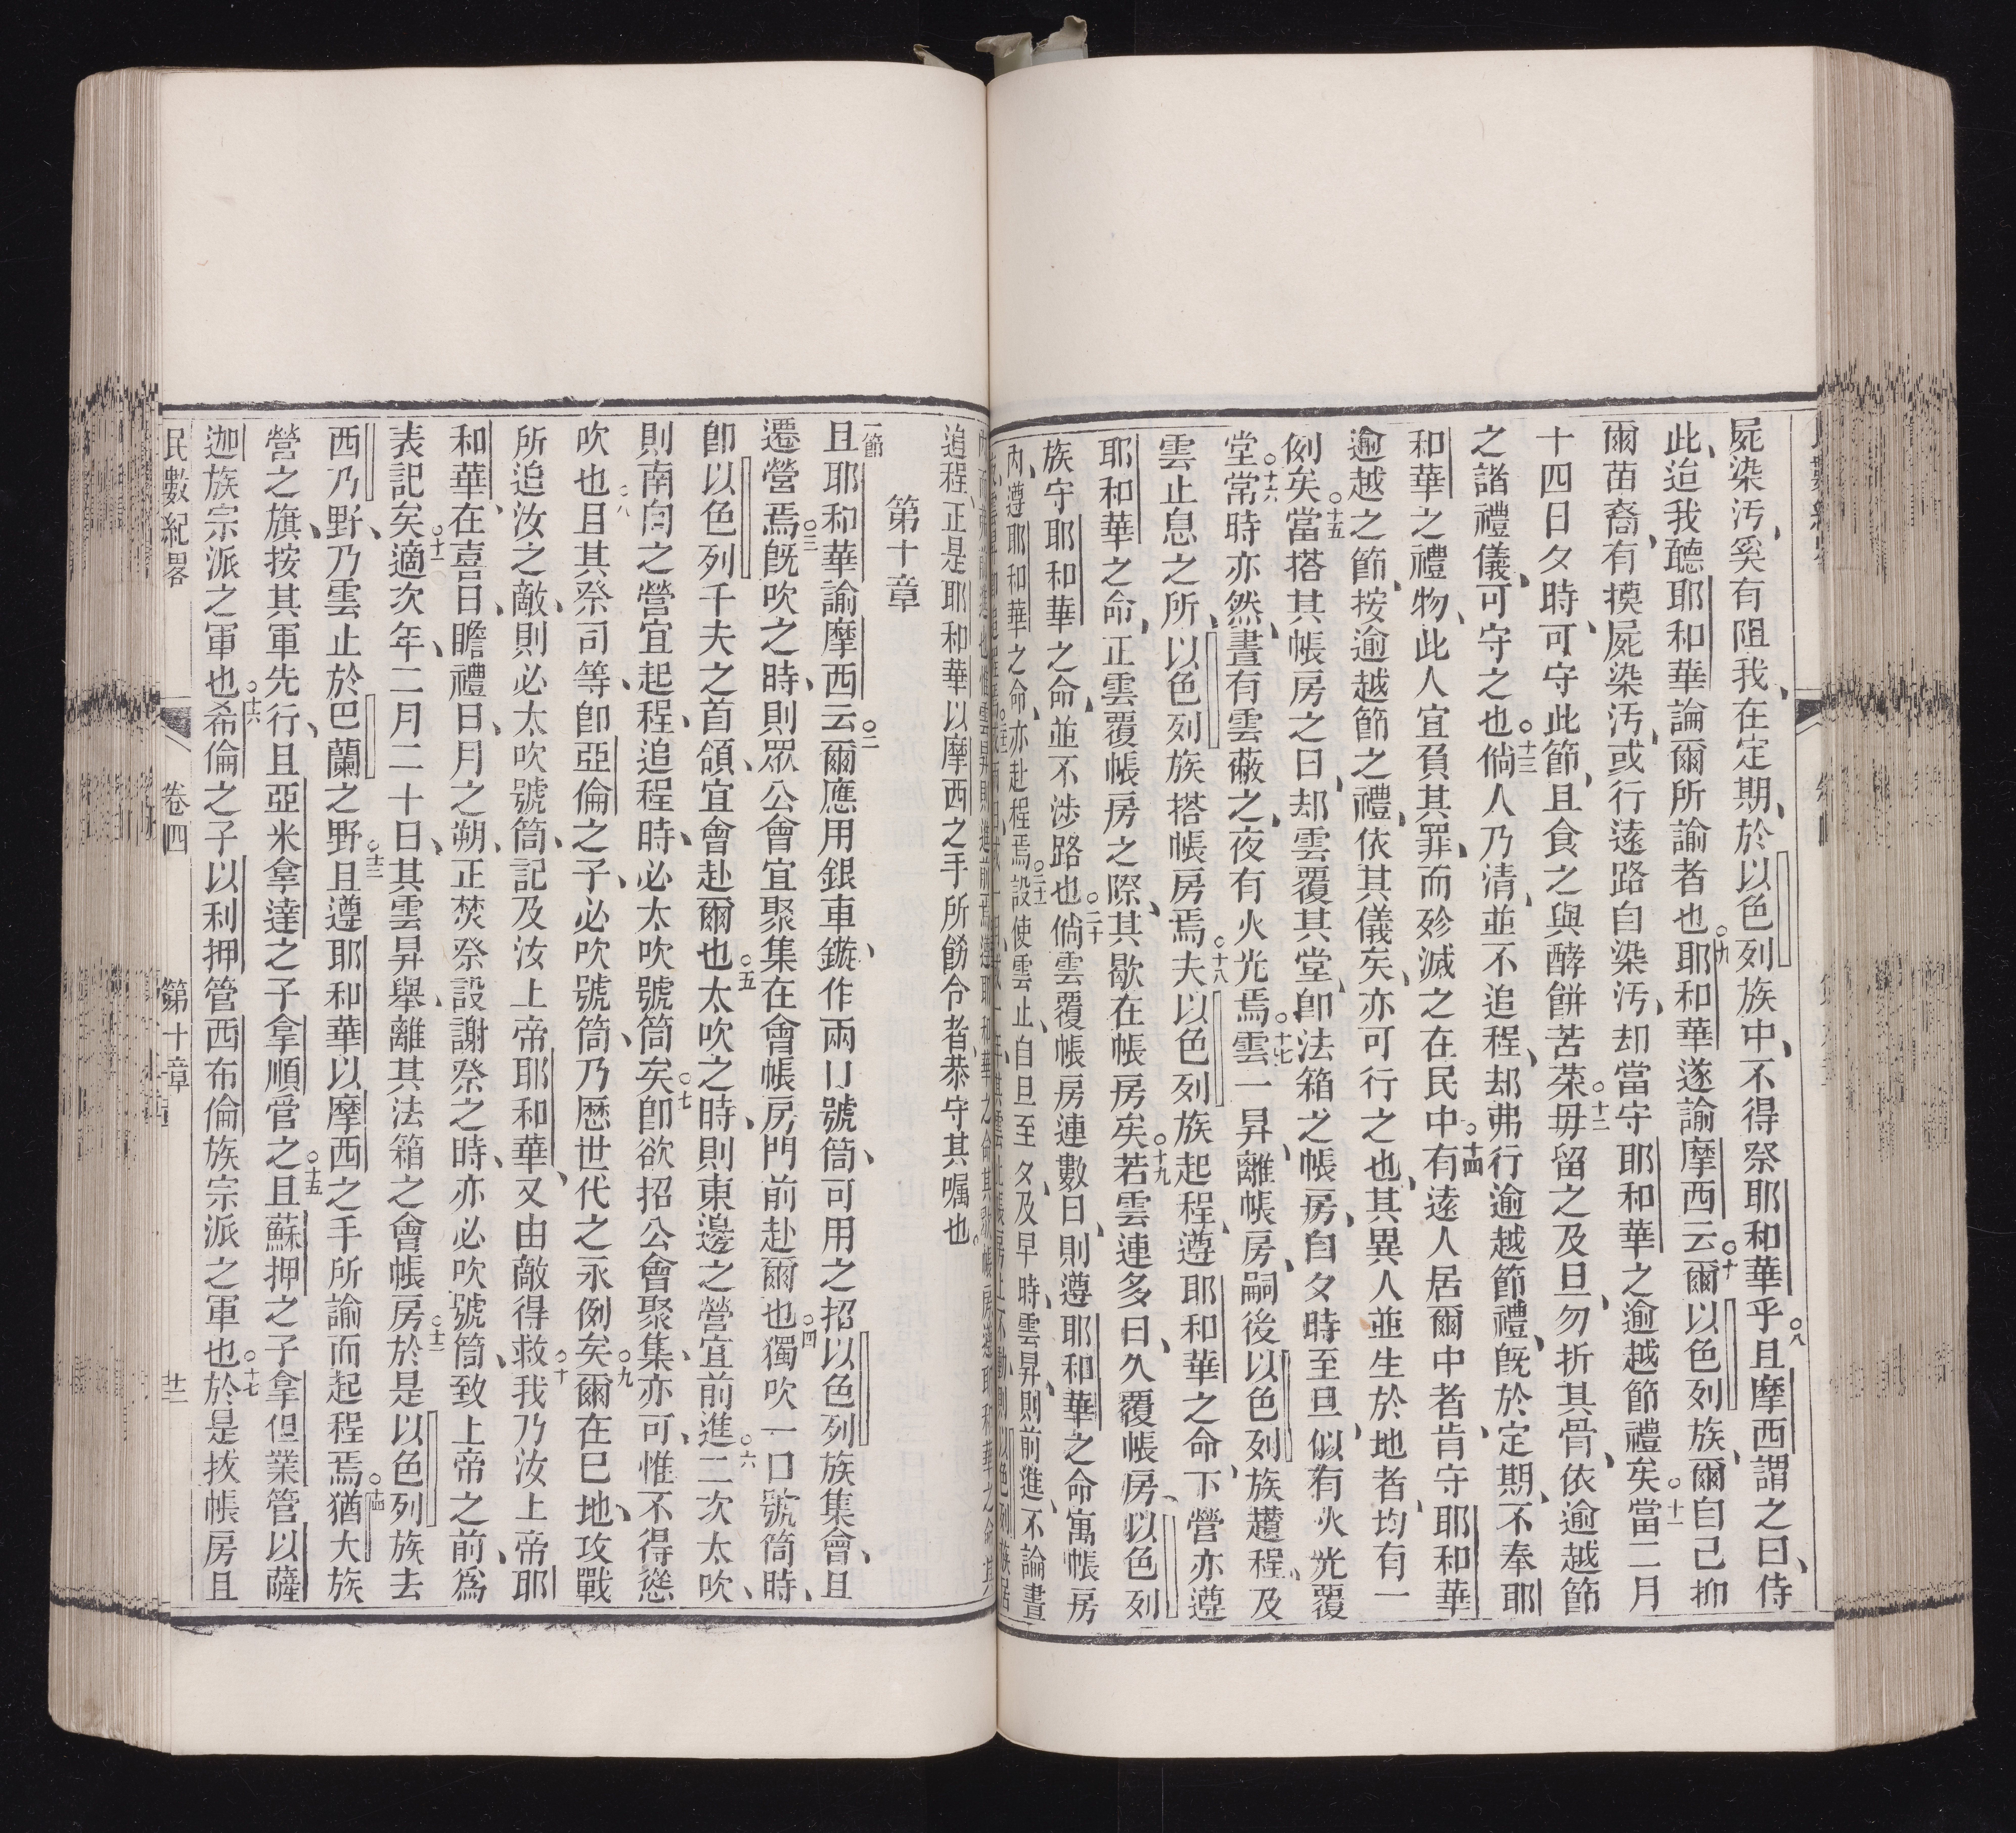 屍染汚、奚有阻我、在定期、於以色列族中、不得祭耶和華乎○八且摩西謂之曰、侍
此、迨我聽耶和華論爾所諭者也○九耶和華遂諭摩西云○十爾以色列族、爾自己抑
爾苗裔、有摸屍染汚、或行遠路自染汚、却當守耶和華之逾越節禮矣○十一當二月
十四日夕時、可守此節、且食之與酵餅苦菜○十二毋留之及旦、勿折其骨、依逾越節
之諸禮儀、可守之也○十三倘人乃清、並不追程、却弗行逾越節禮、既於定期、不奉耶
和華之禮物、此人宜負其罪、而殄滅之在民中○十四有遠人居爾中者、肯守耶和華
逾越之節、按逾越節之禮、依其儀矣、亦可行之也、其異人並生於地者、均有一
例矣○十五當搭其帳房之日、却雲覆其堂、卽法箱之帳房、自夕時至旦、似有火光覆
堂○十六常時亦然、晝有雲蔽之、夜有火光焉○十七雲一昇、離帳房、嗣後以色列族趲程、及
雲止息之所、以色列族搭帳房焉○十八夫以色列族起程、遵耶和華之命、下營亦遵
耶和華之命、正雲覆帳房之際、其歇在帳房矣○十九若雲連多日、久覆帳房、以色列
族守耶和華之命、並不涉路也○二十倘雲覆帳房連數日、則遵耶和華之命寓帳房
內、遵耶和華之命、亦赴程焉○二十一設使雲止、自旦至夕、及早時、雲昇、則前進、不論晝
追程、正是耶和華以摩西之手所飭令者、恭守其嘱也。
第十章
一節 且耶和華諭摩西云○二爾應用銀車鏇、作兩口號筒、可用之招以色列族集會、且
遷營焉○三既吹之時、則眾公會宜聚集在會帳房門前赴爾也○四獨吹一口號筒時、
卽以色列千夫之首領、宜會赴爾也○五太吹之時、則東邊之營宜前進○六二次太吹、
則南向之營宜起程、追程時、必太吹號筒矣○七卽欲招公會聚集、亦可、惟不得愻
吹也○八且其祭司等、卽亞倫之子、必吹號筒、乃歷世代之永例矣○九爾在巳地、攻戰
所追汝之敵、則必太吹號筒、記及汝上帝耶和華、又由敵得救○十我乃汝上帝、耶
和華、在喜日、瞻禮日、月之朔、正焚祭設謝祭之時、亦必吹號筒、致上帝之前、爲
表記矣○十一適次年、二月二十日、其雲昇舉、離其法箱之會帳房○十二於是以色列族去
西乃野、乃雲止於巴蘭之野○十三且遵耶和華以摩西之手所諭而起程焉○十四猶大族
營之旗、按其軍先行、且亞米拿達之子拿順管之○十五且蘇押之子拿但業管以薩
迦族宗派之軍也○十六希倫之子以利押管西布倫族宗派之軍也○十七於是拔帳房、且
民數紀畧 卷四 第十章 廿二